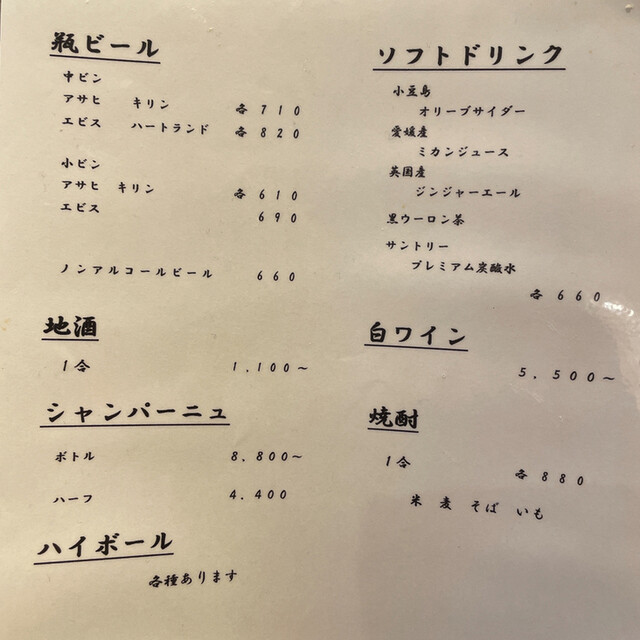 瓶ビール
中ビン
アサヒ キリン 各710
エビス ハートランド 各820
小ビン
アサヒ キリン 各610
エビス 690
ノンアルコールビール 660
地酒
1合 1,100～
シャンパーニュ
ボトル 8.800～
ハーフ 4.400
ハイボール
各種あります
ソフトドリンク
小豆島
オリーブサイダー
愛媛産
ミカンジュース
英国産
ジンジャーエール
黒ウーロン茶
サントリー
プレミアム炭酸水
各660
白ワイン
5.500～
焼酎
1合 各880
米 麦 そば いも